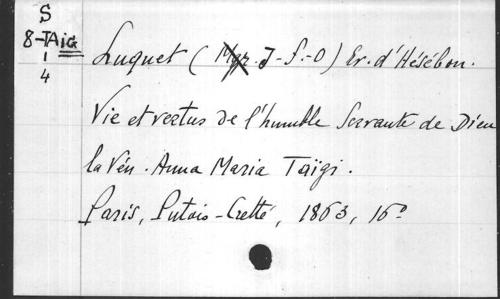 S
8-TAig
1
4
Luquet (Mgr. J-F.-O) Ev. d'Hésébon.
Vie et vertus de l'humble Servante de Dieu
la Vén. Anna Maria Taïgi.
Paris, Putois-Cretté, 1863, 16º